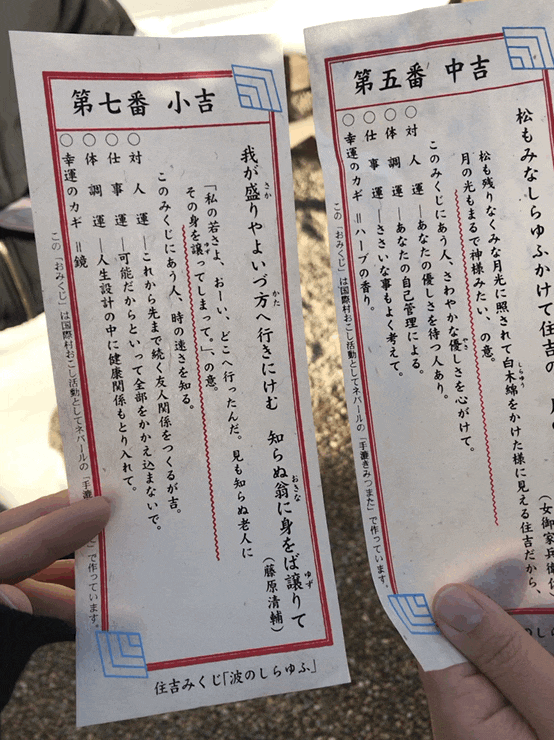 第七番 小吉
我が盛りやよいづ方へ行きにけむ 知らぬ翁に身をば譲りて
(藤原清輔)
「私の若さよ、おーい、どこへ行ったんだ。見も知らぬ老人に
その身を譲ってしまって。」、の意。
このみくじにあう人、時の速さを知る。
○対人運―これから先まで続く友人関係をつくるが吉。
○仕事運―可能だからといって全部をかかえ込まないで。
○体調運―人生設計の中に健康関係もとり入れて。
○幸運のカギ=鏡
この「おみくじ」は国際村おこし活動としてネパールの「手漉 」で作っています。
住吉みくじ「波のしらゆふ」
第五番 中吉
松もみなしらゆふかけて住吉の
(女御家兵衛
松も残りなくみな月光に照されて白木綿をかけた様に見える住吉だから、
月の光もまるで神様みたい、の意。
このみくじにあう人、さわやかな優しさを心がけて。
○対人運―あなたの優しさを待つ人あり。
○体調運―あなたの自己管理による。
○仕事運―ささいな事もよく考えて。
○幸運のカギ=ハーブの香り。
この「おみくじ」は国際村おこし活動としてネパールの「手漉きみつまた」で作っています。
住吉みくじ「波のし